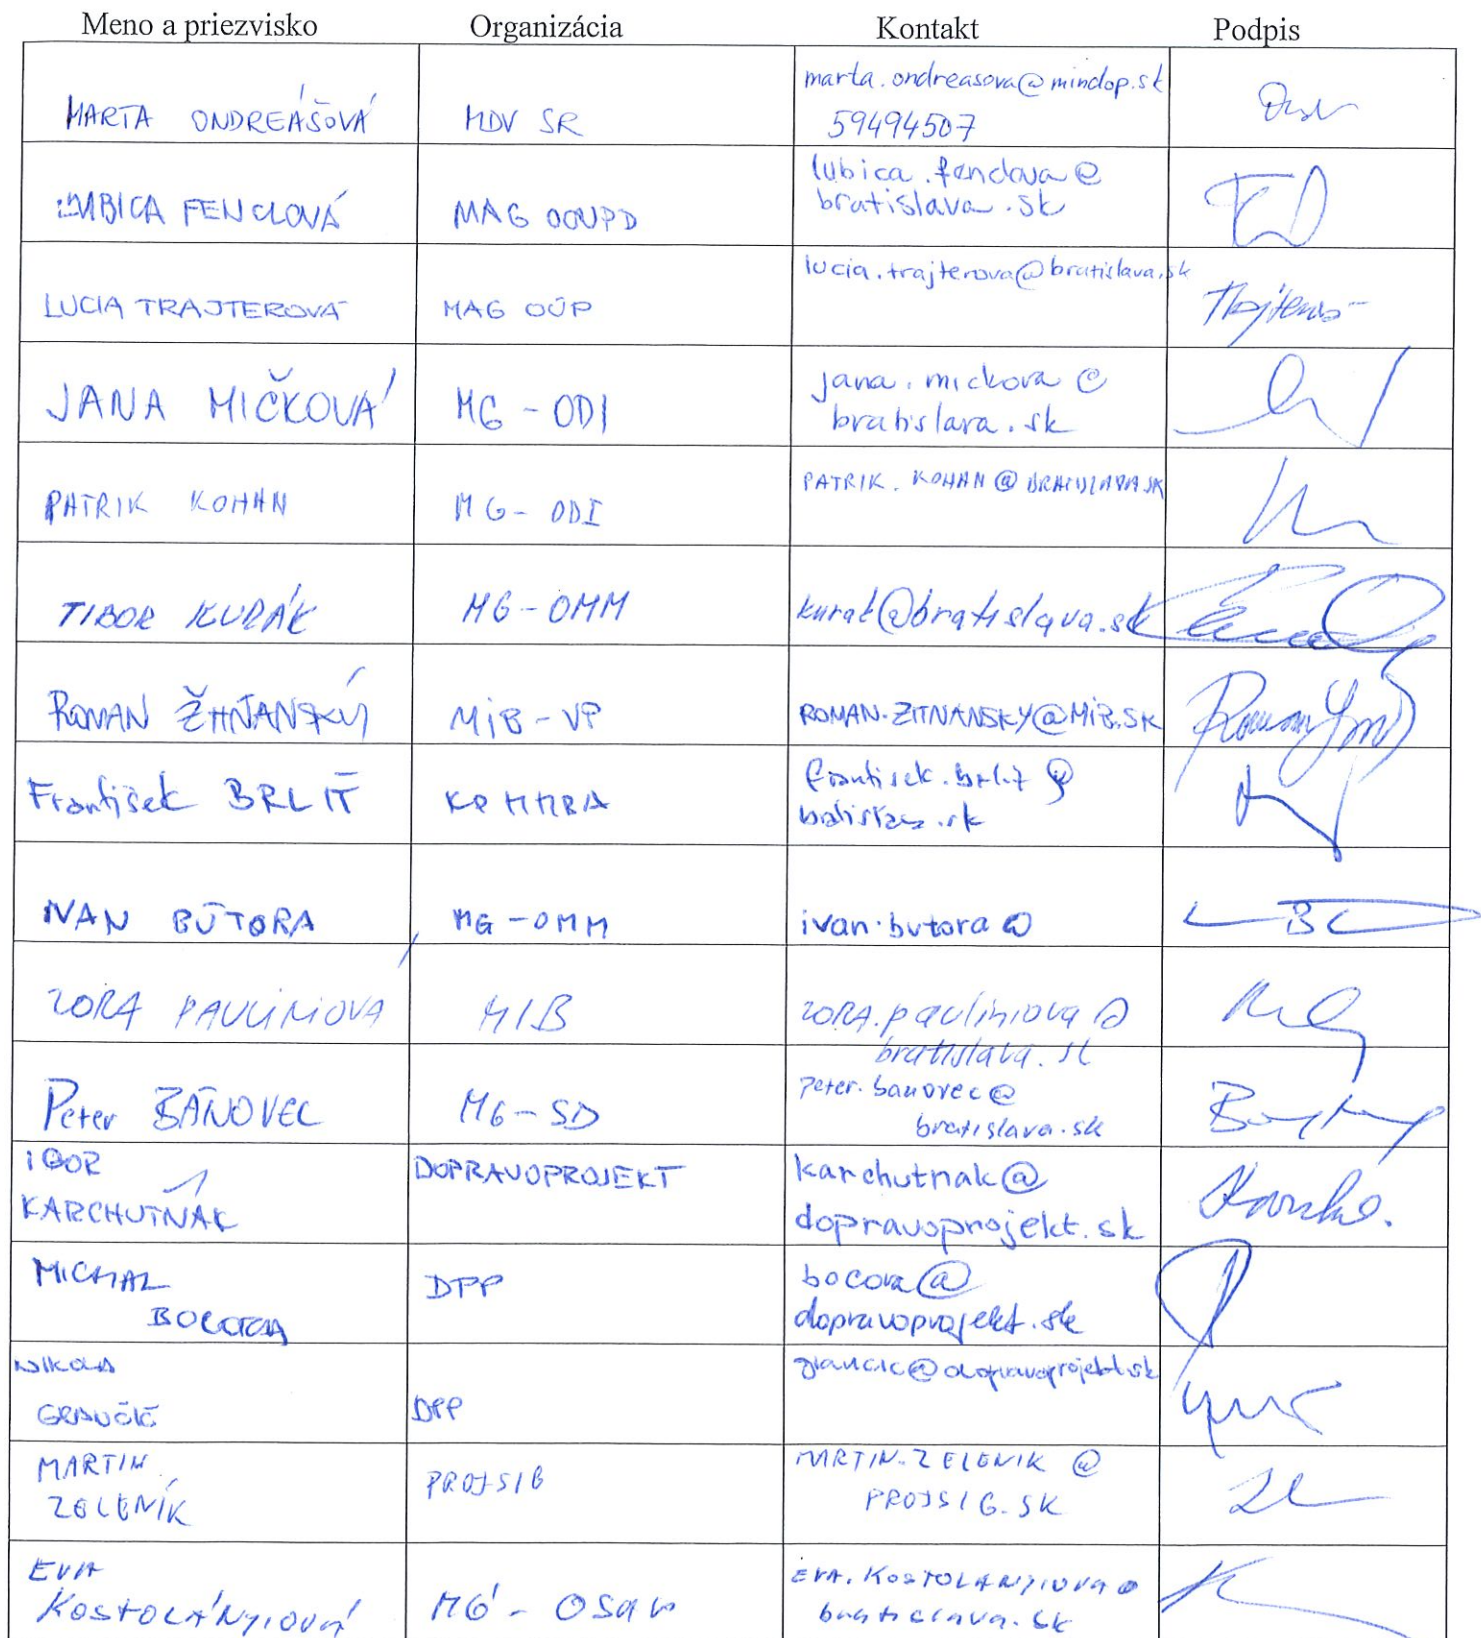 Meno a priezvisko Organizácia Kontakt Podpis
MARTA ONDREÁŠOVÁ MDV SR marta.ondreasova@mindop.sk
59494507
ĽUBICA FENCLOVÁ MAG OOUPD lubica.fenclova@
bratislava.sk
LUCIA TRAJTEROVÁ MAG OÚP lucia.trajterova@bratislava.sk
JANA MIČKOVÁ MG - ODI jana.mickova@
bratislava.sk
PATRIK KOHAN MG - ODI PATRIK.KOHAN@BRATISLAVA.SK
TIBOR KURÁK MG - OMM kurak@bratislava.sk
ROMAN ŽITŇANSKÝ MiB - VP ROMAN.ZITNANSKY@MiB.SK
František BRLIŤ KP MMBA frantisek.brlit@
bratislava.sk
IVAN BÚTORA MG - OMM ivan.butora@
ZORA PAULINIOVÁ MIB ZORA.pauliniova@
bratislava.sk
Peter BÁNOVEC MG - SD Peter.banovec@
bratislava.sk
IGOR DOPRAVOPROJEKT karchutnak@
KARCHUTŇÁK dopravoprojekt.sk
MICHAL DPP bocora@
BOCORA dopravoprojekt.sk
NIKOLA
DPP
MARTIN PROJSIG MARTIN.ZELENIK@
ZELENÍK PROJSIG.SK
EVA EVA.KOSTOLANYIOVA@
KOSTOLÁNYIOVÁ MG - bratislava.sk